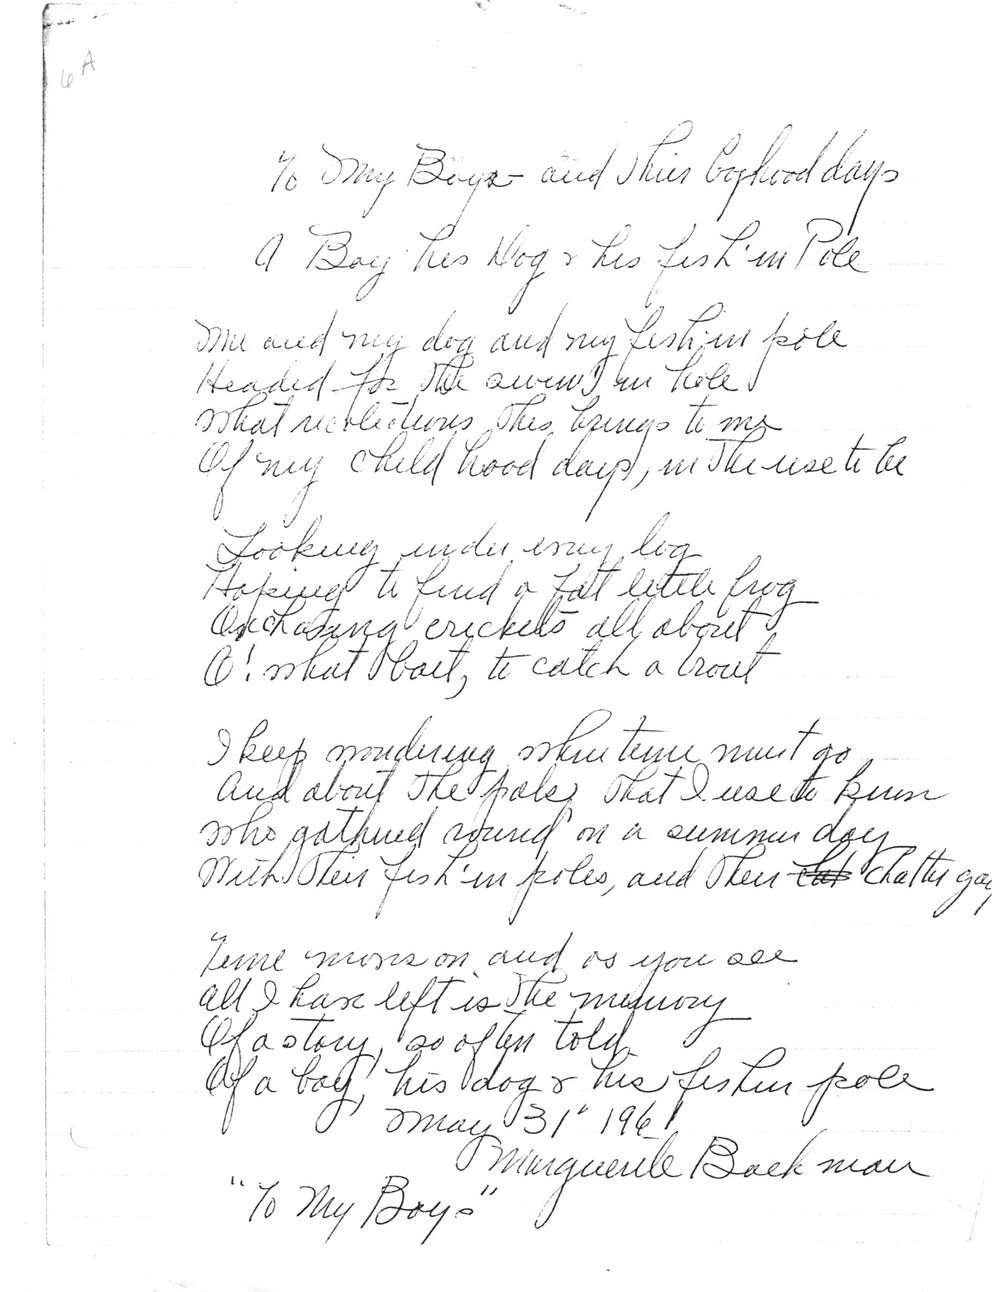 6A
To My Boys - and Their boyhood days
A Boy his Dog & his fish'in Pole
Me and my dog and my fish'in pole
Headed for the swim'in hole
What recolections this brings to me
Of my child hood days, in the use to be
Looking under every log
Hoping to find a fat little frog
Or chasing crickets all about
O! what bait, to catch a trout
I keep wondering where time must go
And about the pals, that I use to know
Who gathered round on a summer day
With their fish'in poles, and their chatter gay
Time moves on and as you see
All I have left is the memory
Of a story, so often told
Of a boy, his dog & his fishin pole
May 31" 1961
Marguerite Backman
"To My Boys"